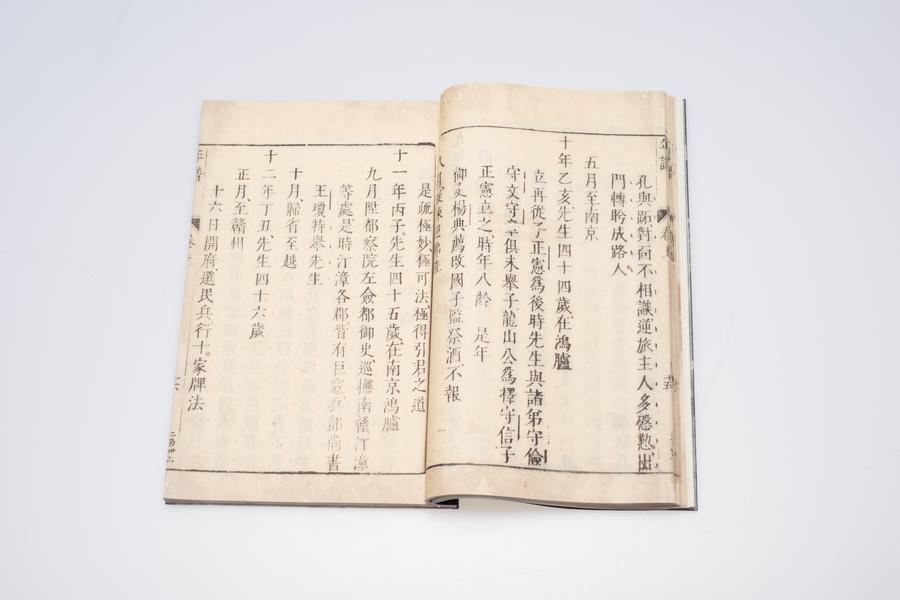 孔與跖對面不相識逆旅主人多慇懃出
門轉盻成路人
五月至南京
十年乙亥先生四十四歲在鴻臚
立再從子正憲爲後時先生與諸弟守儉
守文守章俱未舉子龍山公爲擇守信子
正憲立之時年八齡 是年
御史楊典薦改國子監祭酒不報
八月
是疏極妙極可法極得引君之道
十一年丙子先生四十五歲在南京鴻臚
九月陞都察院左僉都御史巡撫南贛汀漳
等處是時汀漳各郡皆有巨寇兵部尚書
王瓊特舉先生
十月歸省至越
十二年丁丑先生四十六歲
正月至贛州
十六日開府選民兵行十家牌法
年譜